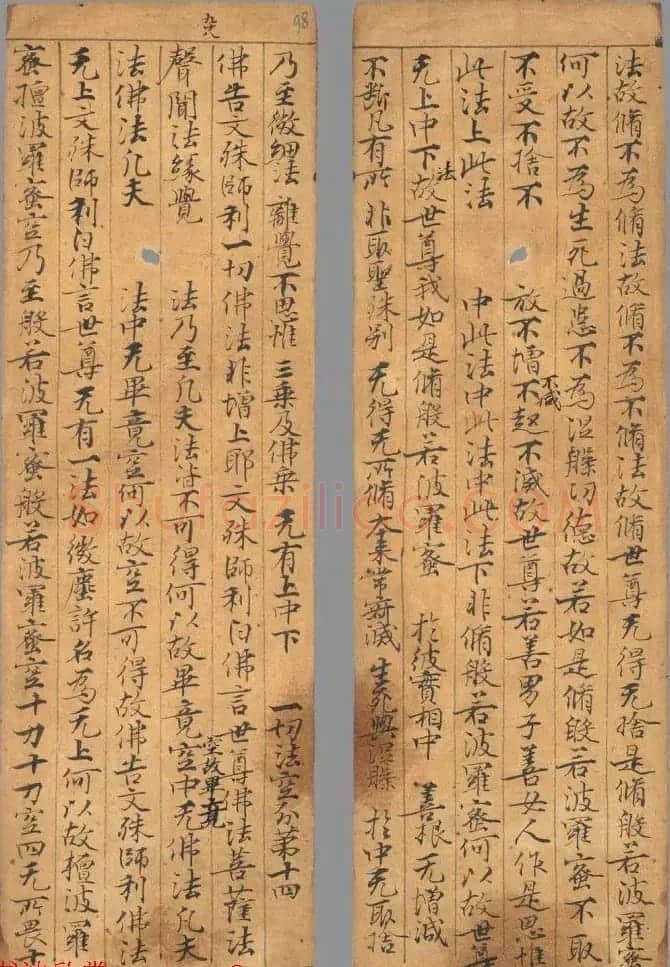 法故脩不為脩法故脩不為不脩法故脩世尊无得无捨是脩般若波羅蜜
何以故不為生死過患不為涅槃功德故若如是脩般若波羅蜜不取
不受不捨不 放不增不減不起不滅故世尊若善男子善女人作是思惟
此法上此法 中此法中此法中此法下非脩般若波羅蜜何以故世尊
无上中下法故世尊我如是脩般若波羅蜜 於彼實相中 善根无增減
不斷凡有所 非取聖殊別 无得无所脩 本来常寂滅 生死與涅槃 於中无取捨
98
乃至微細法 離覺不思惟 三乘及佛乘 无有上中下 一切法空分第十四
佛告文殊師利一切佛法非增上耶文殊師利白佛言世尊佛法菩薩法
聲聞法緣覺 法乃至凡夫法皆不可得何以故畢竟空故畢竟空中无佛法凡夫
法佛法凡夫 法中无畢竟空何以故空不可得故佛告文殊師利佛法
无上文殊師利白佛言世尊无有一法如微塵許名為无上何以故檀波羅
蜜檀波羅蜜空乃至般若波羅蜜般若波羅蜜空十力十力空四无所畏十
shufaziliao.com